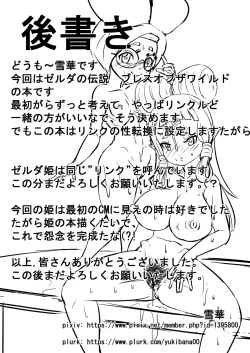 後書き
どうも～雪華です
今回はゼルダの伝説 ブレスオブザワイルド
の本です
最初からずっと考えて、やっぱリンクルと
一緒の方がいいなで、そう決めます
でもこの本はリンクの性転換に設定しますたがら
ゼルダ姫は同じ"リンク"を呼んでいます
この分までよろしくお願いいたします(?
今回の姫は最初のCMに見えの時は好きでした
たがら姫の本描くたいで、
これで怨念を完成たな(?!
以上,皆さんありがとうございました
この後までよろしくお願いいたします
雪華
pixiv: https://www.pixiv.net/member.php?id=1395800
plurk: http://www.plurk.com/yukibana00